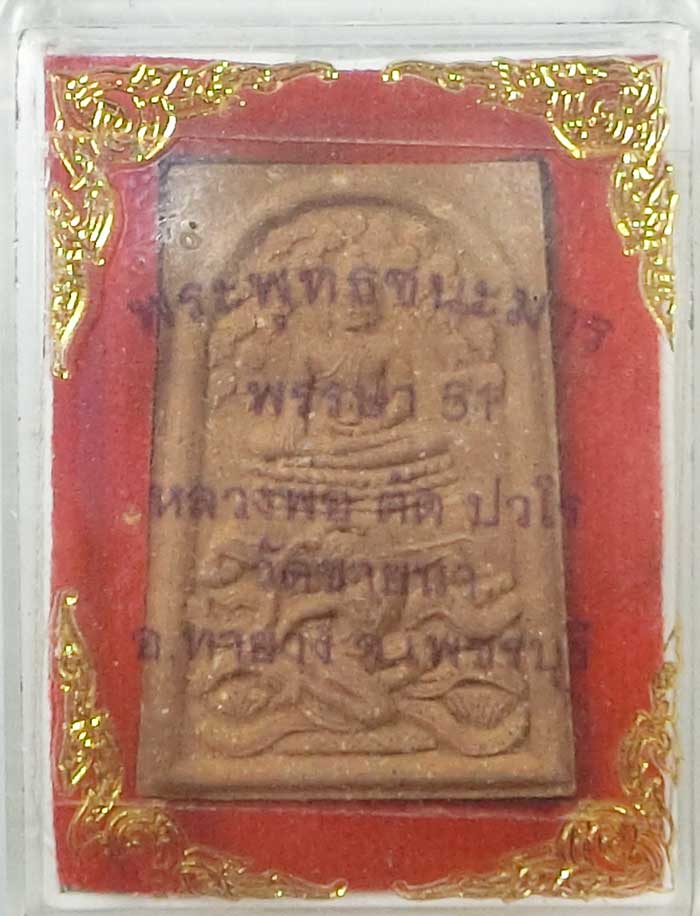 พระพุทธชนะมาร
พรรษา 51
หลวงพ่อ ตัด ปวโร
วัดชายนา
อ.ท่ายาง จ.เพชรบุรี